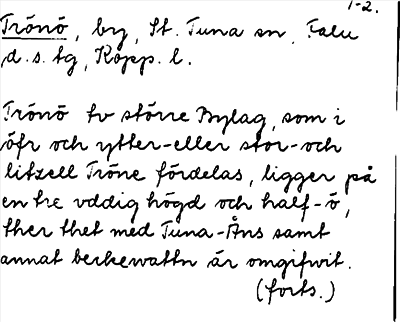 1-2.
Trönö, by, St. Tuna sn, Falu
d.s. tg, Kopp. l.
Trönö tv större Bylag, som i
öfr och ytter-eller stor-och
litzell Tröne fördelas, ligger på
en tre vddig högd och half-ö,
ther thet med Tuna-Åns samt
annat berkewattn är omgifwit.
(forts.)